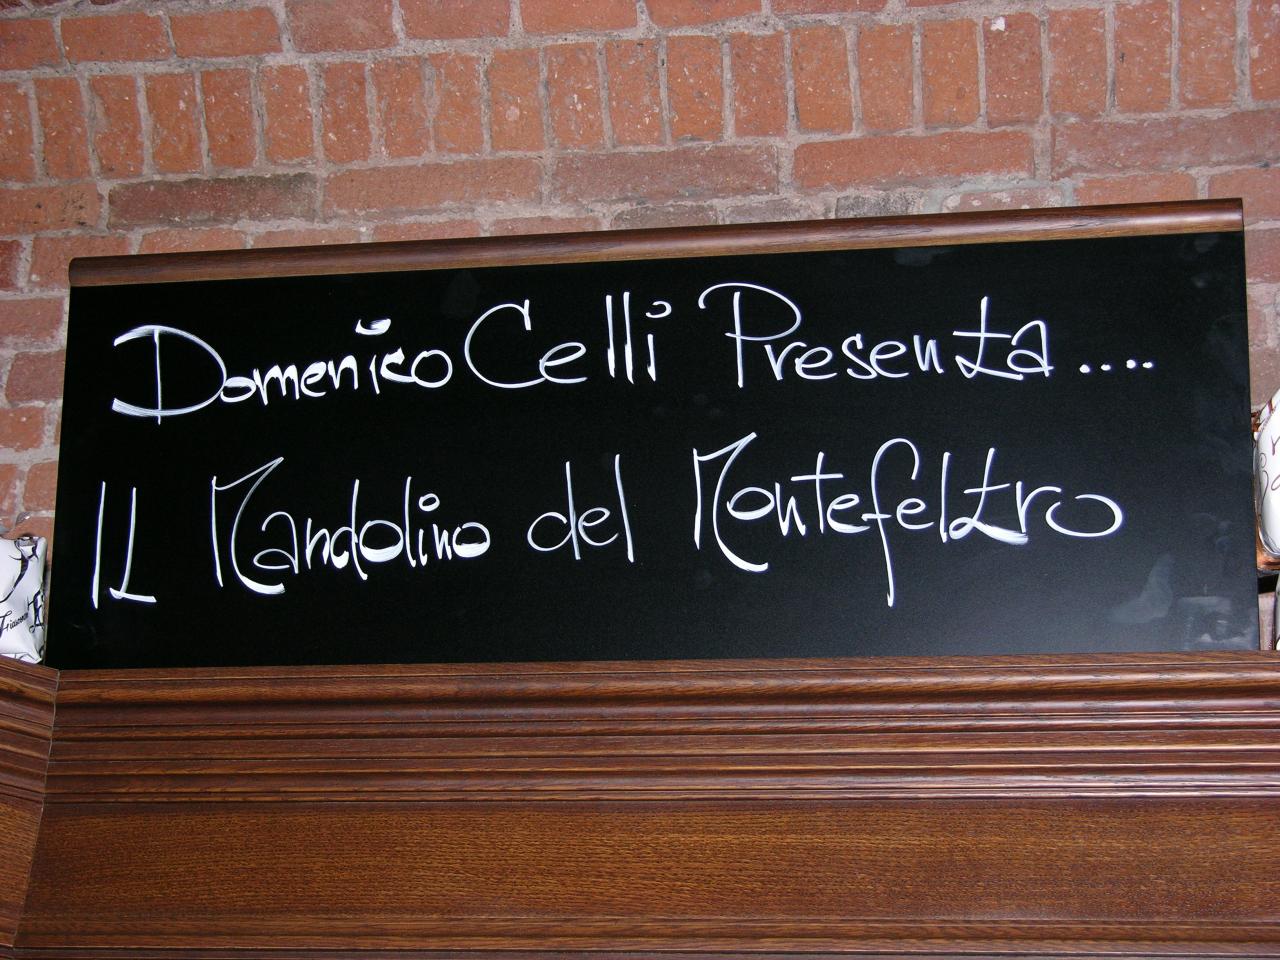 Domenico Celli Presenta....
IL Mandolino del Montefeltro